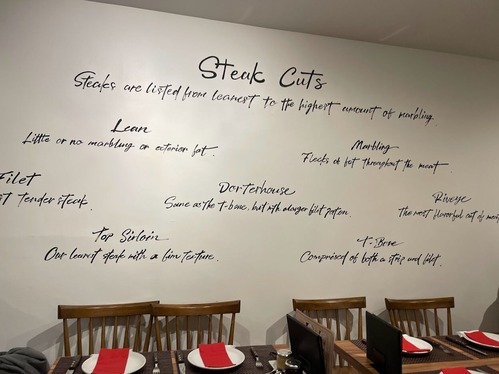 Steak Cuts
Steaks are listed from leanest to the highest amount of marbling.
Lean
Little or no marbling or exterior fat.
Marbling
Flecks of fat throughout the meat.
Filet
tender steak.
Porterhouse
Same as the T-bone, but with a larger filet portion.
Ribeye
The most flavorful cut of
Top Sirloin
Our leanest steak with a firm texture.
T-Bone
Comprised of both a strip and filet.